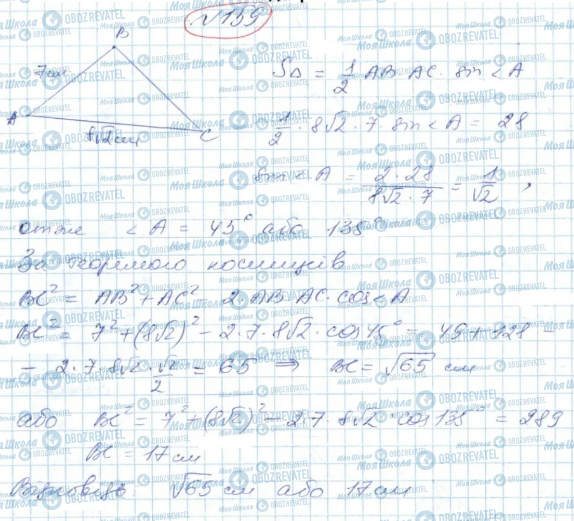 № 159
B
7см
A
8√2 см
C
S∆ = 1/2 AB AC · sin < A
1/2 · 8√2 · 7 · sin < A = 28
sin < A = 2 · 28 / 8√2 · 7 = 1/√2 ,
отже < A = 45° або 135°
За теоремою косинусів
BC² = AB² + AC² 2 · AB · AC · cos < A
BC² = 7² + (8√2)² - 2 · 7 · 8√2 · cos 45° = 49 + 128 -
- 2 · 7 · 8√2 · √2/2 = 65 ⇒ BC = √65 см
або BC² = 7² + (8√2)² - 2 · 7 · 8√2 · cos 135° = 289
BC = 17 см
Відповідь √65 см або 17 см
Моя Школа
OBOZREVATEL